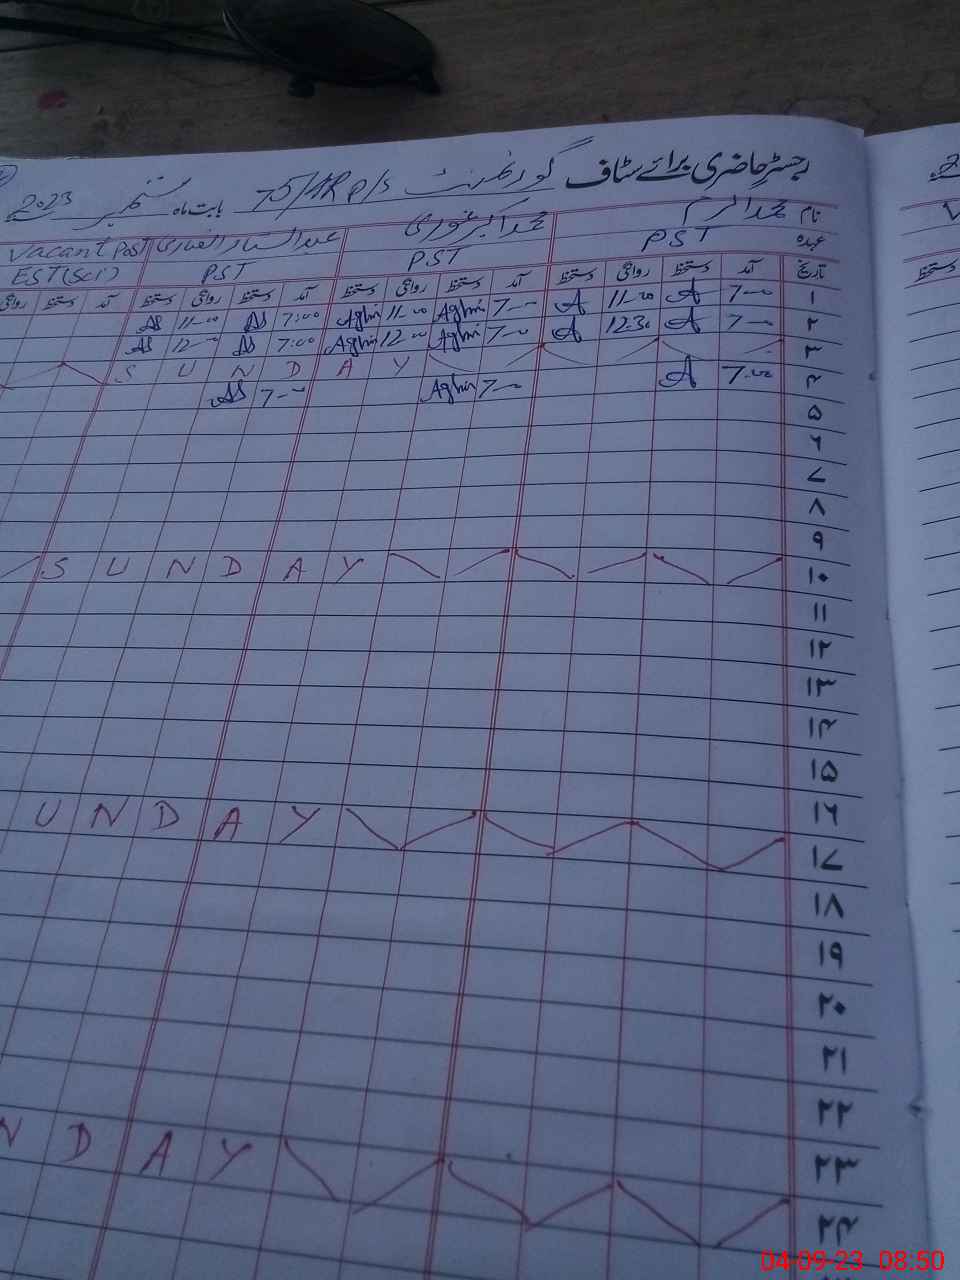 رجسٹر حاضری برائے سٹاف گورنمنٹ 75/4R P/S بابت ماہ ستمبر 2023
نام محمد اکرم محمد اکبر غوری عبدالستار انصاری Vacant Post
عہدہ PST PST PST EST(Sci)
تاریخ آمد دستخط روانگی دستخط آمد دستخط روانگی دستخط آمد دستخط روانگی دستخط آمد دستخط روانگی
۱ 7-00 A 11-00 A 7-00 Aghri 11-00 Aghri 7:00 AS 11-00 AS
۲ 7-00 A 12-30 A 7-00 Aghri 12-00 Aghri 7:00 AS 12-00 AS
۳ SUNDAY
۴ 7-00 A 7-00 Aghri 7-00 AS
۵
۶
۷
۸
۹
۱۰ SUNDAY
۱۱
۱۲
۱۳
۱۴
۱۵
۱۶
۱۷ UNDAY
۱۸
۱۹
۲۰
۲۱
۲۲
۲۳
۲۴ NDAY
04-09-23 08:50